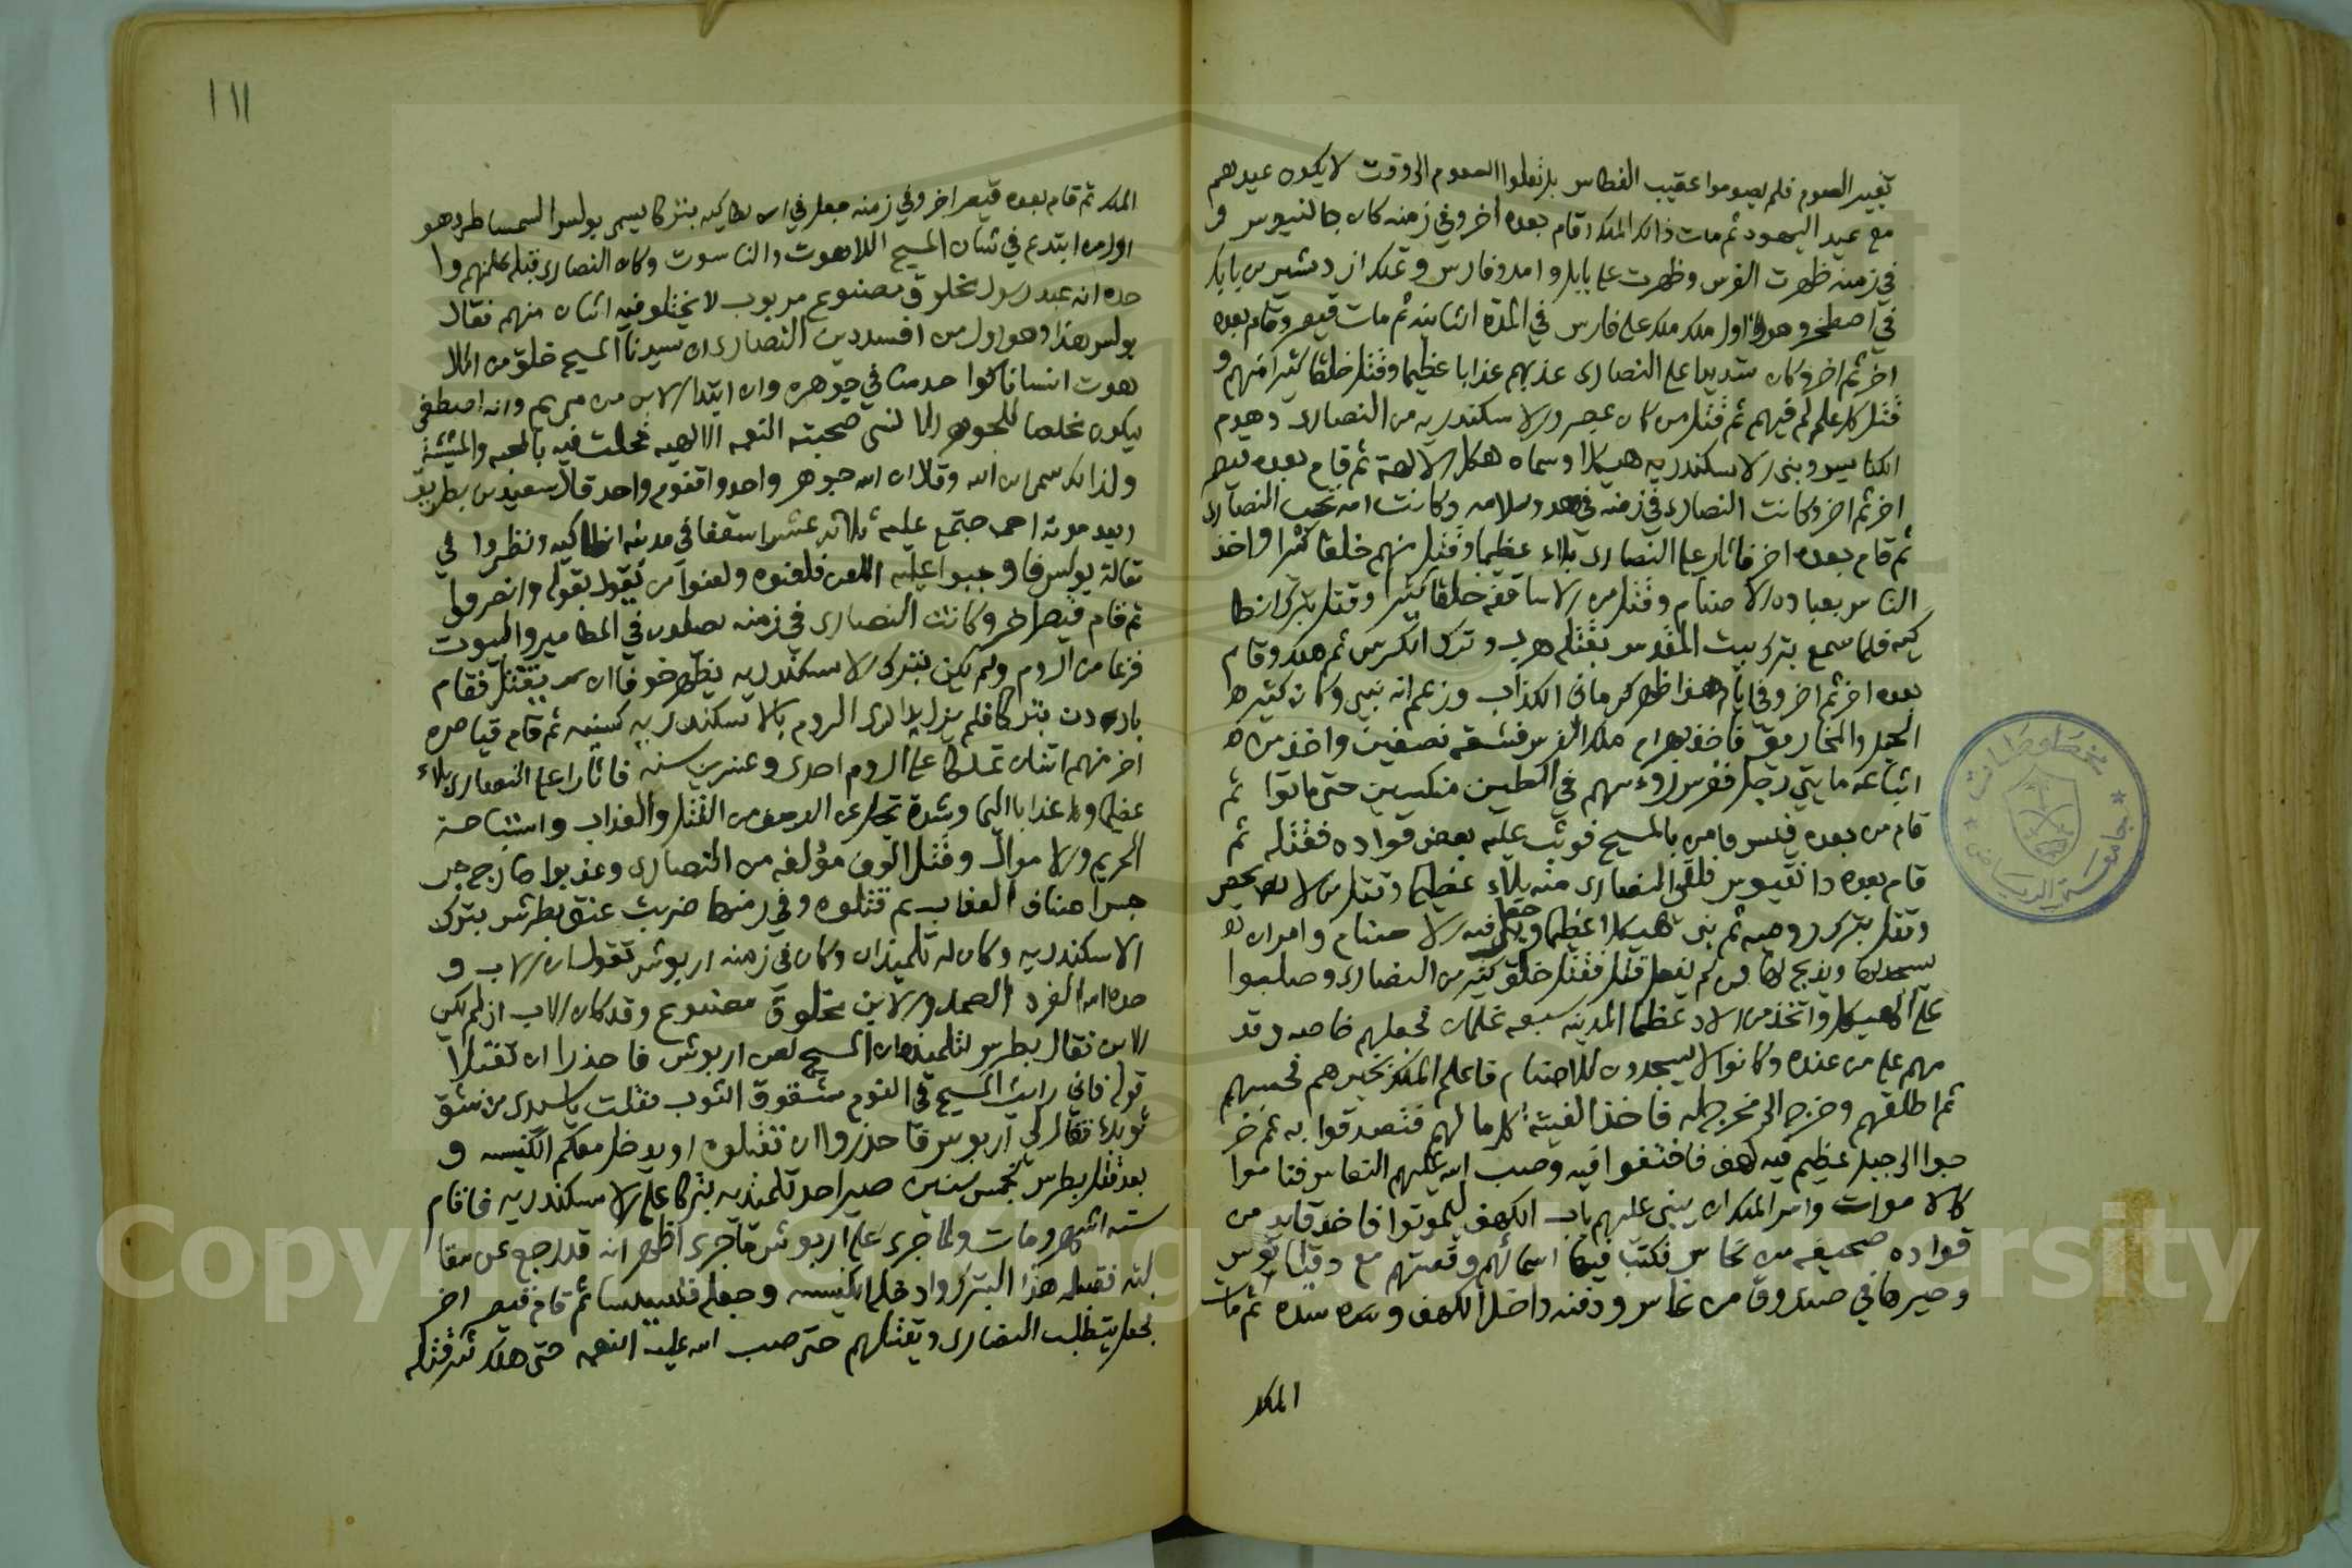 تغيير الصوم فلم يصوموا عقيب الغطاس بل نقلوا الصوم الى وقت لا يكون عيدهم
مع عيد اليهود ثم مات ذالك الملك وقام بعده اخر وفي زمنه كان جالنيوس و
في زمنه ظهرت الفرس وظهرت على بابل و امد وفارس وتملك ازدشير بن بابك
في اصطخر وهو اول ملك ملك على فارس في المدة الثانيه ثم مات قيصر وقام بعده
اخر ثم اخر وكان شديدا على النصارى عذبهم عذابا عظيما وقتل خلقا كثيرا منهم و
قتل كل عالم فيهم ثم قتل من كان بمصر والاسكندريه من النصارى وهدم
الكنايس وبنى بالاسكندريه هيكلا وسماه هيكل الالهة ثم قام بعده قيصر
اخر ثم اخر وكانت النصارى في زمنه في هدو وسلامه وكانت امه تحب النصارى
ثم قام بعده اخر فاثار على النصارى بلاء عظيما وقتل منهم خلقا كثيرا واخذ
الناس بعبادة الاصنام وقتل من الاساقفه خلقا كثيرا وقتل بترك انطا
كيه فلما سمع بترك بيت المقدس بقتله هرب وترك الكرسي ثم هلك وقام
بعده اخر ثم اخر وفي ايام هذا ظهر ماني الكذاب وزعم انه نبي وكان كثير
الحيل والمخاريق فاخذ بهرام ملك الفرس فشقه نصفين واخذ من
اتباعه مايتي رجل فغرس رؤسهم في الطين منكسين حتى ماتوا ثم
قام من بعده فيلبس فامن بالمسيح فوثب عليه بعض قواده فقتله ثم
قام بعده دانقيوس فلقي النصارى منه بلاء عظيما وقتل من لا يحصى
وقتل بترك روميه ثم بنى هيكلا عظيما وجعل فيه الاصنام وامر ان
يسجد لها ويذبح لها ومن لم يفعل قتل فقتل خلق كثير من النصارى وصلبوا
على الهيكل واتخذ من اولاد عظما المدينه سبعه غلمان فجعلهم خاصه وقد
مهم على من عنده وكانوا لا يسجدون للاصنام فاعلم الملك بخبرهم فحبسهم
ثم اطلقهم وخرج الى مخرج له فاخذ الفيتة كل ما لهم فتصدقوا به ثم خر
جوا الى جبل عظيم فيه كهف فاختفوا فيه وصب الله عليهم النعاس فناموا
كالاموات وامر الملك ان يبنى عليهم باب الكهف ليموتوا فاخذ قايد من
قواده صحيفه من نحاس فكتب فيها اسمائهم وقصتهم مع دقيانوس
وصيرها في صندوق من نحاس ودفنه داخل الكهف وسده ثم مات
الملك
١١١
الملك ثم قام بعده قيصر اخر وفي زمنه جعل في انطاكيه بتركا يسمى بولس السمساطى وهو
اول من ابتدع في شان المسيح اللاهوت والناسوت وكان النصارى قبله كلمتهم وا
حده انه عبد رسول مخلوق مصنوع مربوب لا يختلف فيه اثنان منهم فقال
بولس هذا وهو اول من افسد دين النصارى ان سيدنا المسيح خلق من اللا
هوت انسانا كواحد منا في جوهره وان ابتدا الابن من مريم وانه اصطفى
ليكون مخلصا للجوهر الانسي صحبته النعمه الالهيه فحلت فيه بالمحبه والمشيئة
ولذالك سمي ابن الله وقال ان الله جوهر واحد واقنوم واحد قال سعيد بن بطريق
وبعد موته اجتمع عليه ثلاثه عشر اسقفا في مدينه انطاكيه ونظروا في
مقالة بولس فاوجبوا عليه اللعن فلعنوه ولعنوا من يقول بقوله وانصرفوا
ثم قام قيصر اخر وكانت النصارى في زمنه يصلون في المطامير والبيوت
فزعا من الروم ولم يكن بترك الاسكندريه يظهر خوفا ان يقتل فقام
بارون بتركا فلم يزل يدارى الروم بالاسكندريه كنيسه ثم قام قياصره
اخر منهم اثنان تملكا على الروم احدى وعشرين سنه فاثارا على النصارى بلاء
عظيما وعذابا اليما وشدة تجل عن الوصف من القتل والعذاب واستباحة
الحريم والاموال وقتل الوف مؤلفه من النصارى وعذبوا مارجرجس
اصناف العذاب ثم قتلوه وفي زمنهما ضربت عنق بطرس بترك
الاسكندريه وكان له تلميذان وكان في زمنه اريوس يقول ان الاب و
حده الله الفرد الصمد والابن مخلوق مصنوع وقد كان الاب اذ لم يكن
الابن فقال بطرس لتلميذه ان المسيح لعن اريوس فاحذرا ان تقبلا
قوله فاني رايت المسيح في النوم مشقوق الثوب فقلت يا سيدي من شق
ثوبك فقال لي اريوس فاحذروا ان تقبلوه او يدخل معكم الكنيسه و
بعد قتل بطرس بخمس سنين صير احد تلميذيه بتركا على الاسكندريه فاقام
سته اشهر ومات ولما جرى على اريوس ما جرى اظهر انه قد رجع عن مقا
لته فقبله هذا البترك وادخله الكنيسه وجعله قسيسا ثم قام قيصر اخر
فجعل يتطلب النصارى ويقتلهم حتى صب الله عليه النقمه حتى هلك شر قتله
مخطوطات
جامعة الرياض
Copyright © King Saud University